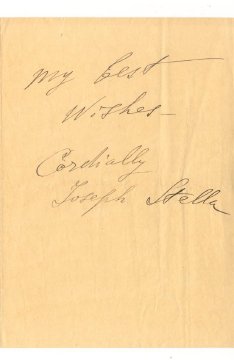 My best
Wishes—
Cordially
Joseph Stella